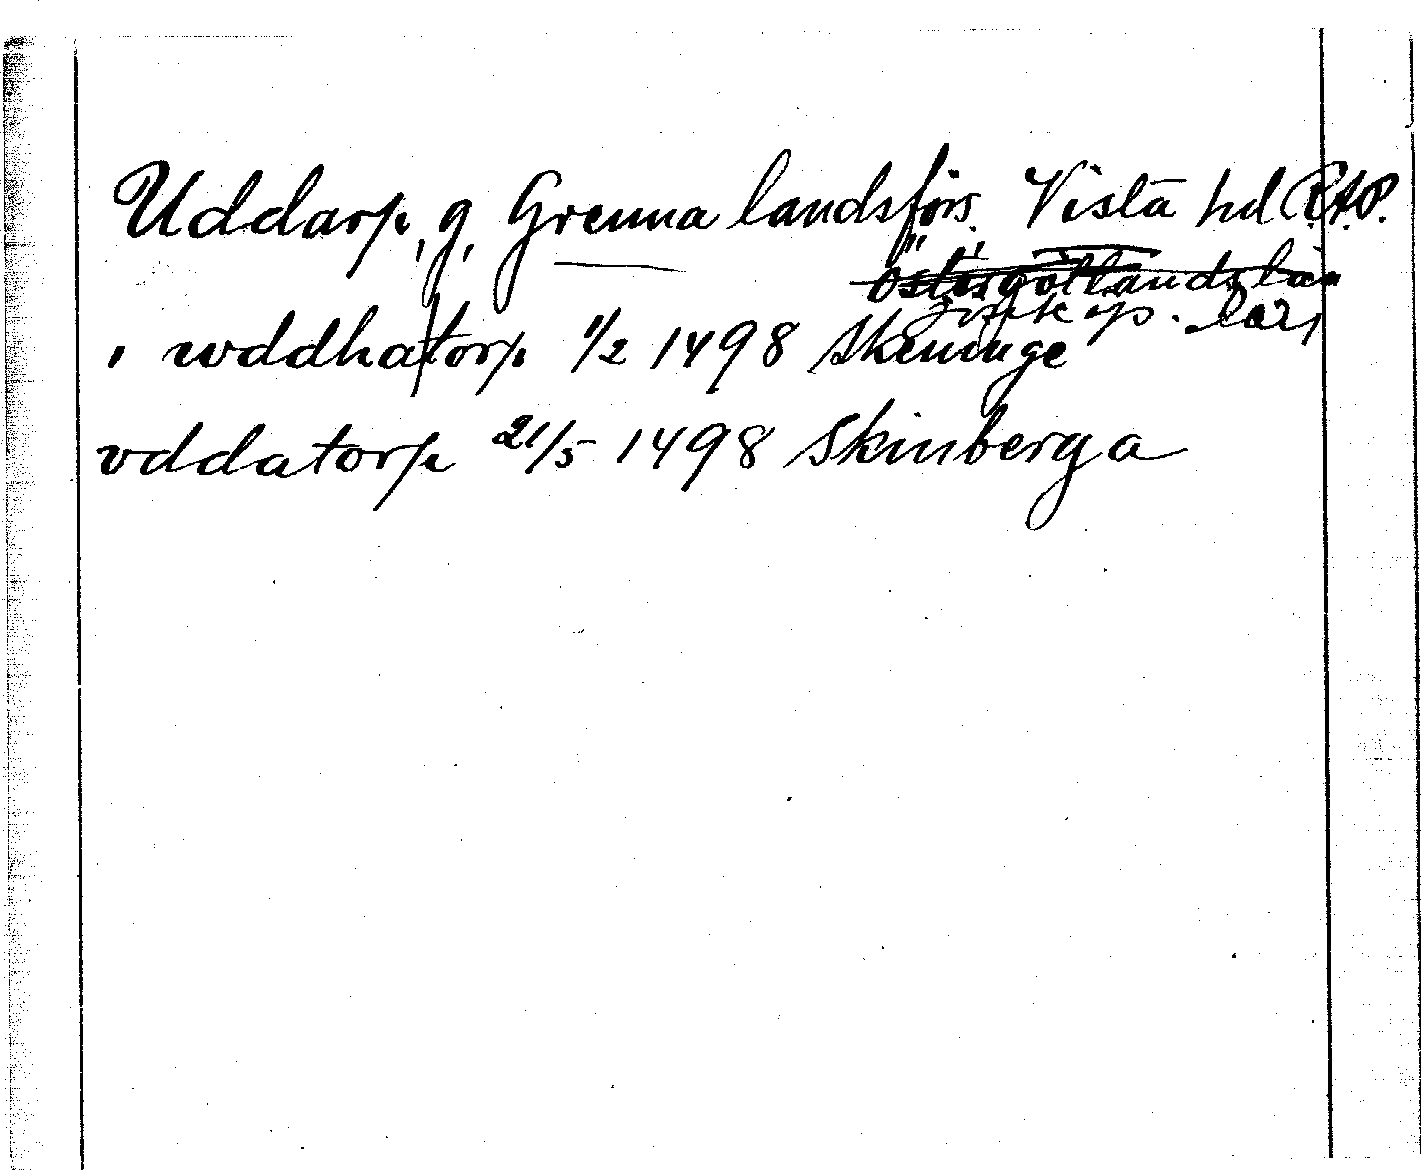 Uddarp, g, Grenna landsförs. Vista hd R.A.P.
Östergötlands län
Jönköp. län
i wddhatorp 1/2 1498 Skeninge
vddatorp 21/5 1498 Skinberga